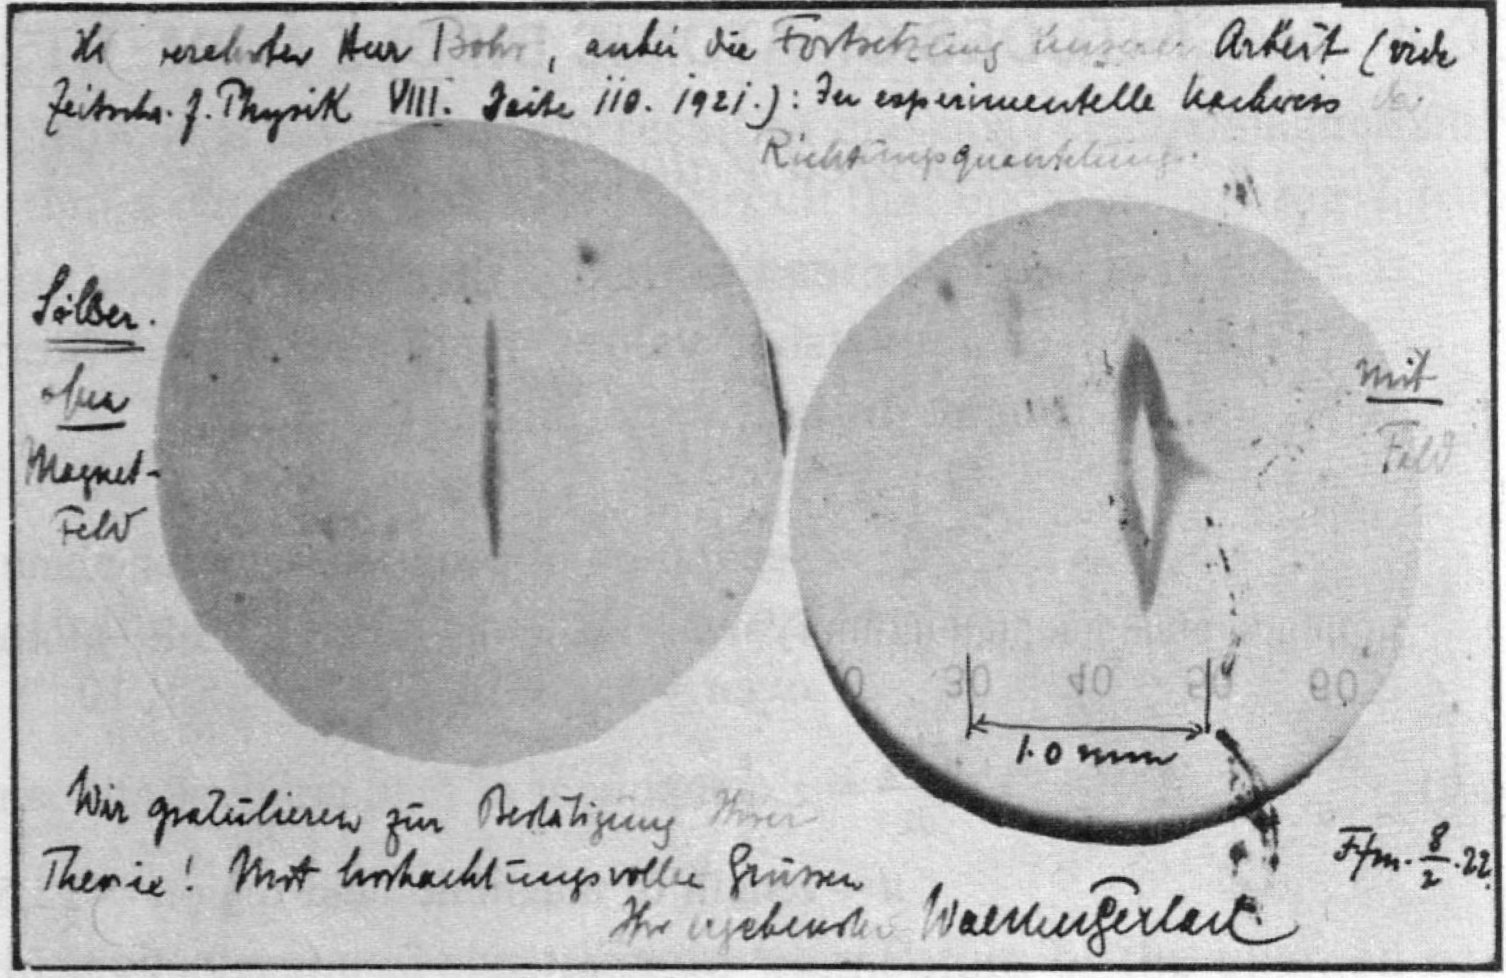 verehrter Herr Bohr, anbei die Fortsetzung unserer Arbeit (vide
Zeitschr. f. Physik VIII. Seite 110. 1921.): Der experimentelle Nachweis der
Richtungsquantelung.
Silber.
ohne
Magnet-
Feld
mit
Feld
0 30 40 50 60
1.0 mm
Wir gratulieren zur Bestätigung Ihrer
Theorie! Mit hochachtungsvollen Grüssen
Ihr ergebenster Walther Gerlach
F/m. 8/2.22.